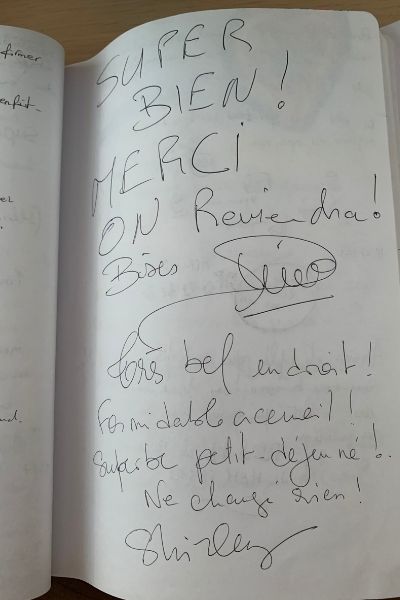 former
enfut-
SUPER
BIEN!
MERCI
ON Reviendra!
Bises
Très bel endroit!
Formidable acceuil!
Superbe petit-déjeuné!
Ne changé rien!
Shirley